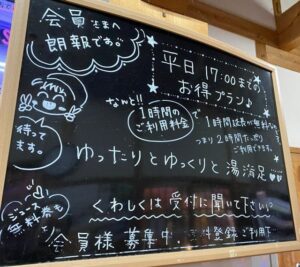 会員さまへ
朗報です。
平日 17:00までの
お得プラン♪
なんと!!
1時間の
ご利用料金
で
1時間延長が無料
つまり2時間たっぷり
ご利用できます。
待ってます。
ゆったりとゆっくりと湯満足♡♡♡
ジュース
無料券も
くわしくは受付に聞いて下さい。
会員様募集中
登録